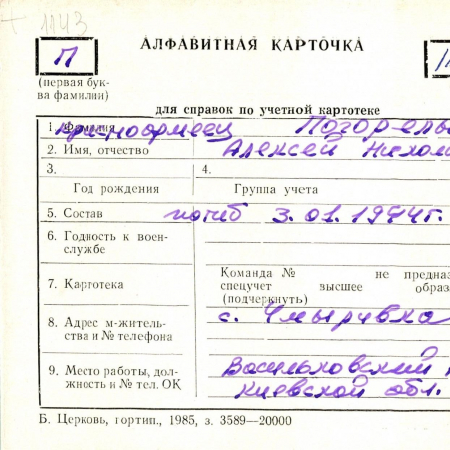 1143
АЛФАВИТНАЯ КАРТОЧКА
П
(первая бук-
ва фамилии)
для справок по учетной картотеке
1. Фамилия красноармеец
2. Имя, отчество Алексей
3.
4.
Год рождения
Группа учета
5. Состав погиб 3.01.1944г.
6. Годность к воен-
службе
7. Картотека
Команда № не предназ
спецучет высшее образ
(подчеркнуть)
8. Адрес м-житель-
ства и № телефона
с. Чмыривка
9. Место работы, дол-
жность и № тел. ОК
Васильковский
Киевской обл.
Б. Церковь, гортип., 1985, з. 3589—20000